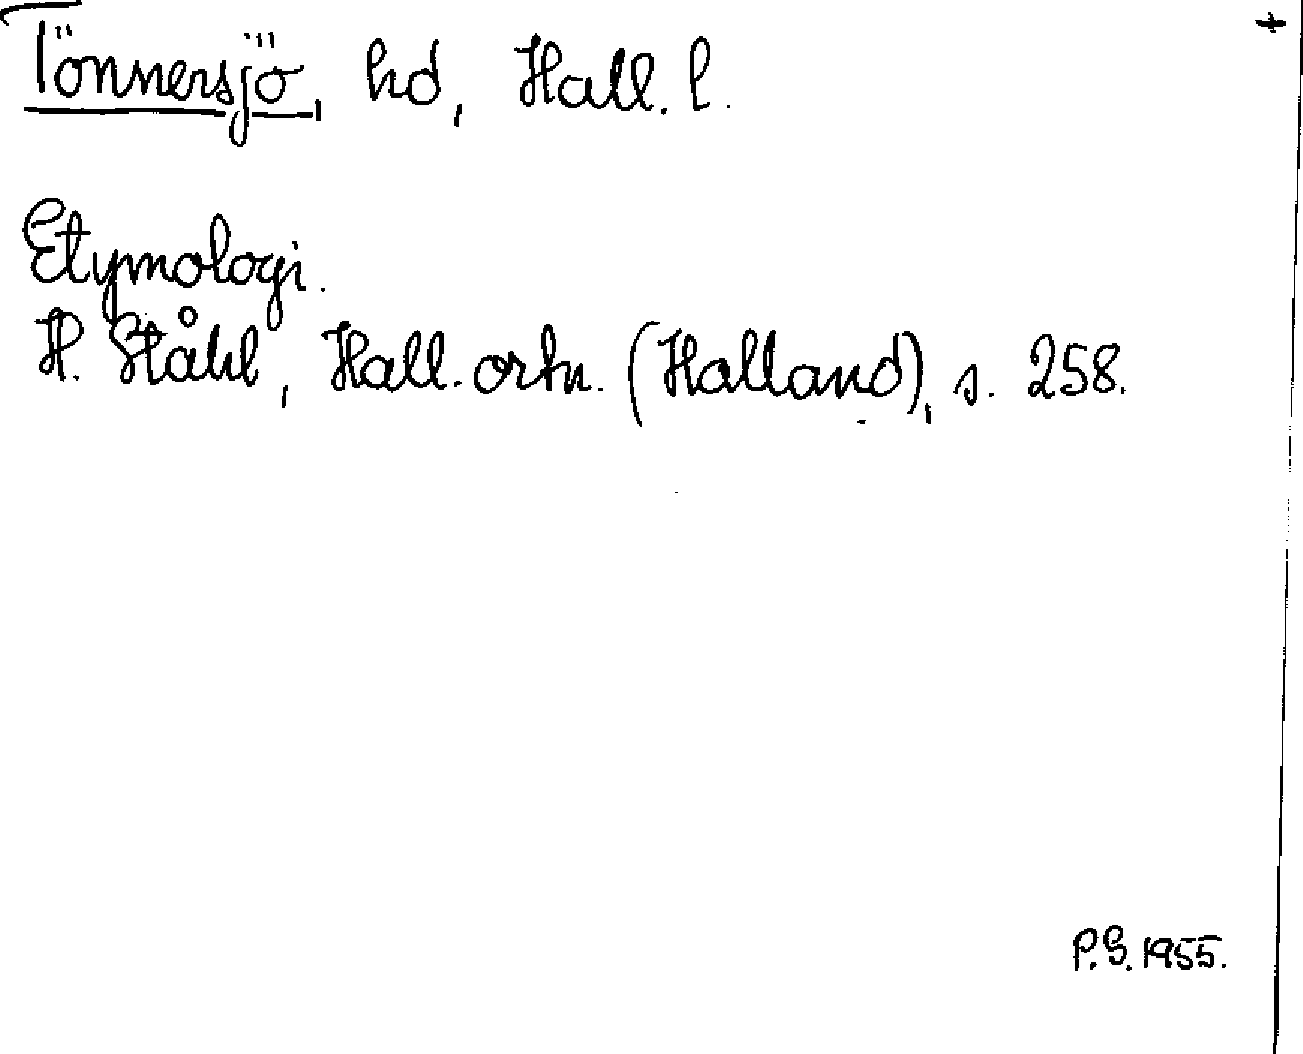 Tönnersjö, hd, Hall. l.
+
Etymologi.
H. Ståhl, Hall. ortn. (Halland), s. 258.
P.G. 1955.